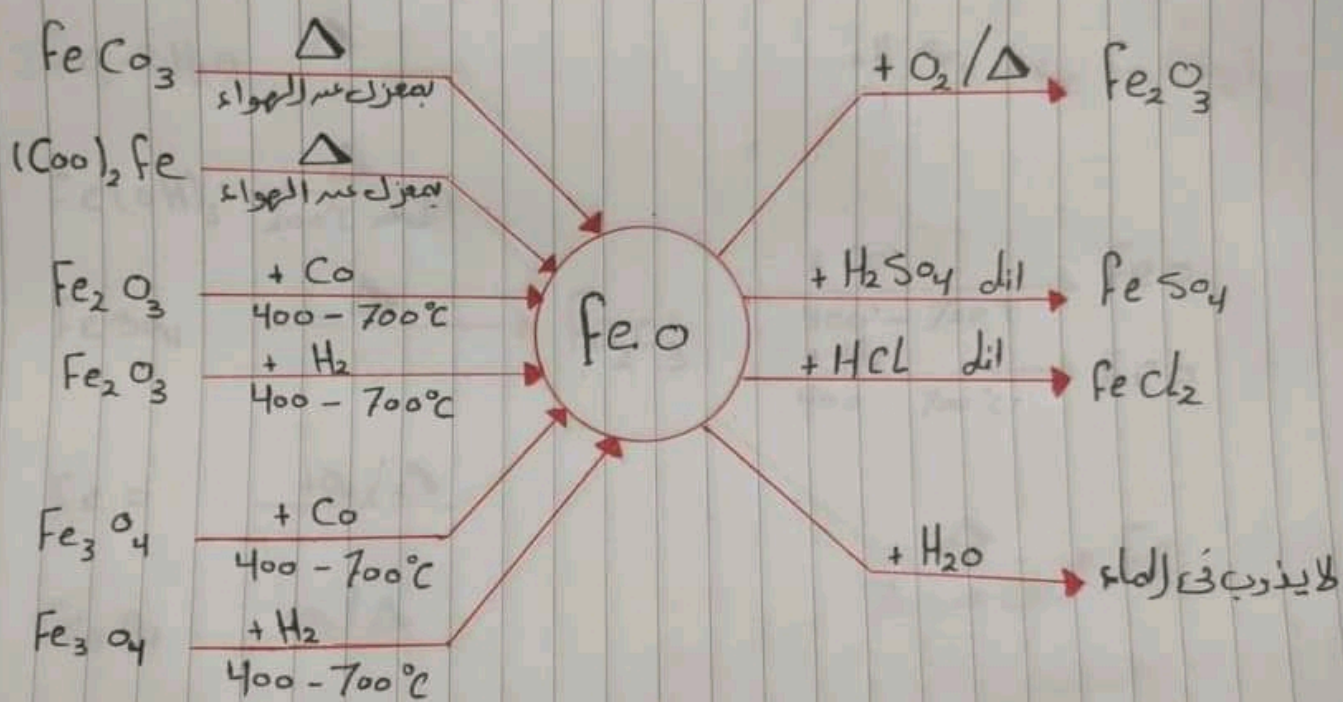 FeCo₃
Δ
بمعزل عن الهواء
(Coo)₂ Fe
Δ
بمعزل عن الهواء
Fe₂ O₃
+ Co
400 - 700°C
Fe₂ O₃
+ H₂
400 - 700°C
Fe₃ O₄
+ Co
400 - 700°C
Fe₃ O₄
+ H₂
400 - 700°C
FeO
+ O₂ / Δ
Fe₂O₃
+ H₂SO₄ dil
FeSO₄
+ HCL dil
FeCl₂
+ H₂O
لا يذوب فى الماء